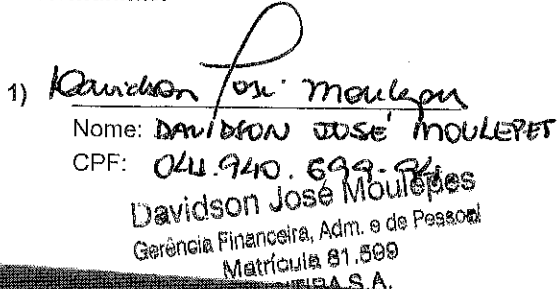 1) Davidson José Moulepes
Nome: DAVIDSON JOSÉ MOULEPES
CPF: 699-
Davidson José Moulepes
Gerência Financeira, Adm. e de Pessoal
Matrícula 81.599
S.A.